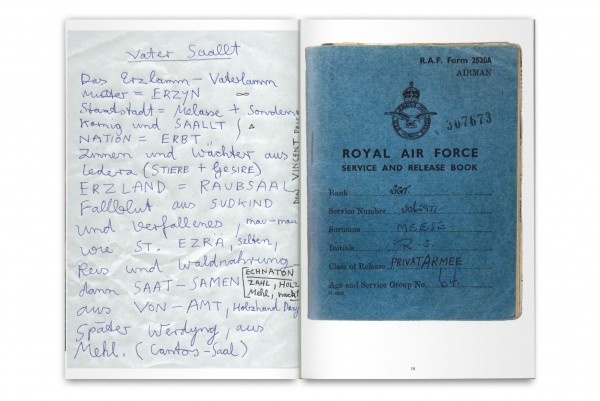 Vater Saallt
Das Erzlamm - Vaterlamm
Mutter = ERZYN
Standstadt = Melasse +
König und SAALLT
NATION = ERBT
Zinnen und Wächter aus
Federa (STIERE + GESIRE)
ERZLAND = RAUBSAAL
Fallblut aus SÜDKIND
und Verfallenes, mau-mau
wie ST. EZRA, selten,
Reis und Waldnahrung
dann SAAT-SAMEN
ECHNATON
ZAHL, HOLZ
Mehl, nackt
aus VON-AMT, Holzhand
Später Werdyng, aus
Mehl. (Cantos-Saal)
VINCENT
R.A.F. Form 2520A
AIRMAN
307673
ROYAL AIR FORCE
SERVICE AND RELEASE BOOK
Rank SGT.
Service Number
Surname MEESE
Initials R. S.
Class of Release PRIVATARMEE
Age and Service Group No. 64
19